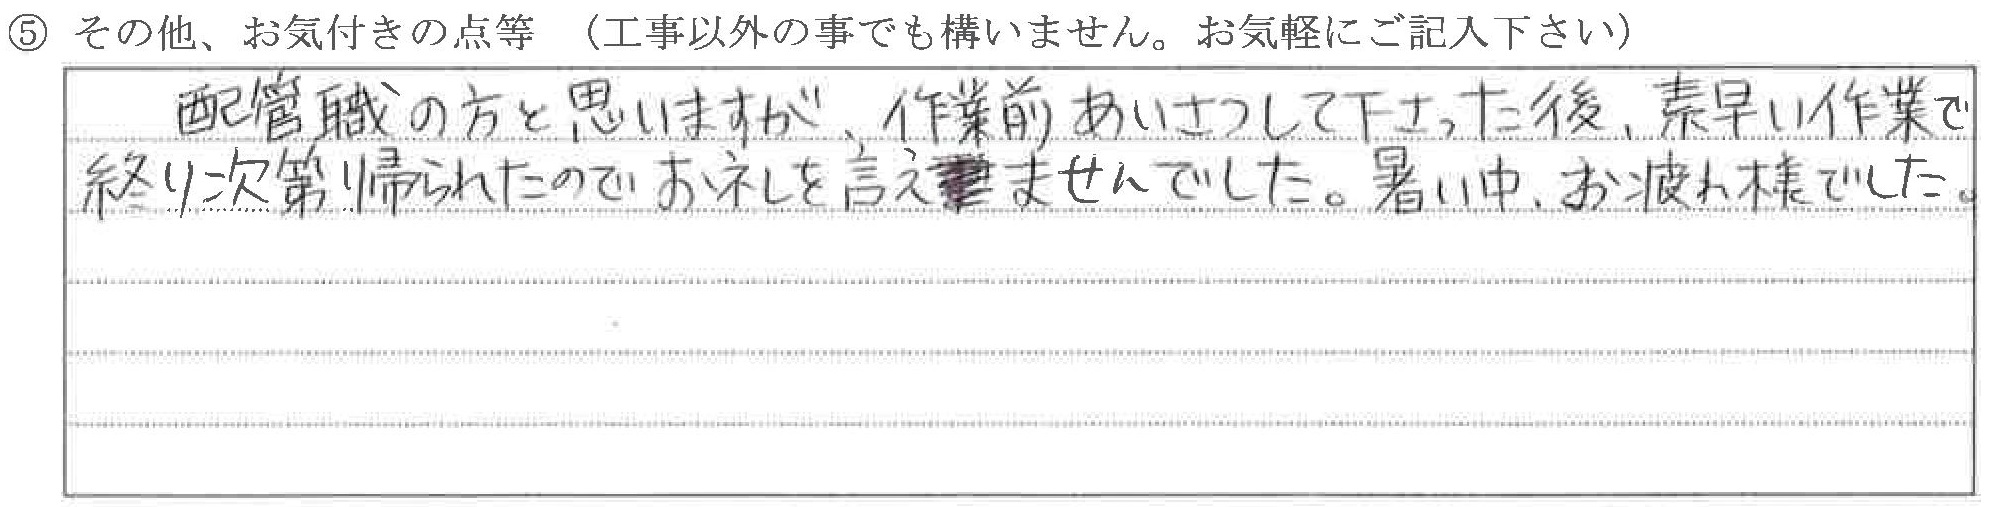 ⑤ その他、お気付きの点等 （工事以外の事でも構いません。お気軽にご記入下さい）
配管職の方と思いますが、作業前あいさつして下さった後、素早い作業で
終り次第帰られたのでお礼を言えませんでした。暑い中、お疲れ様でした。